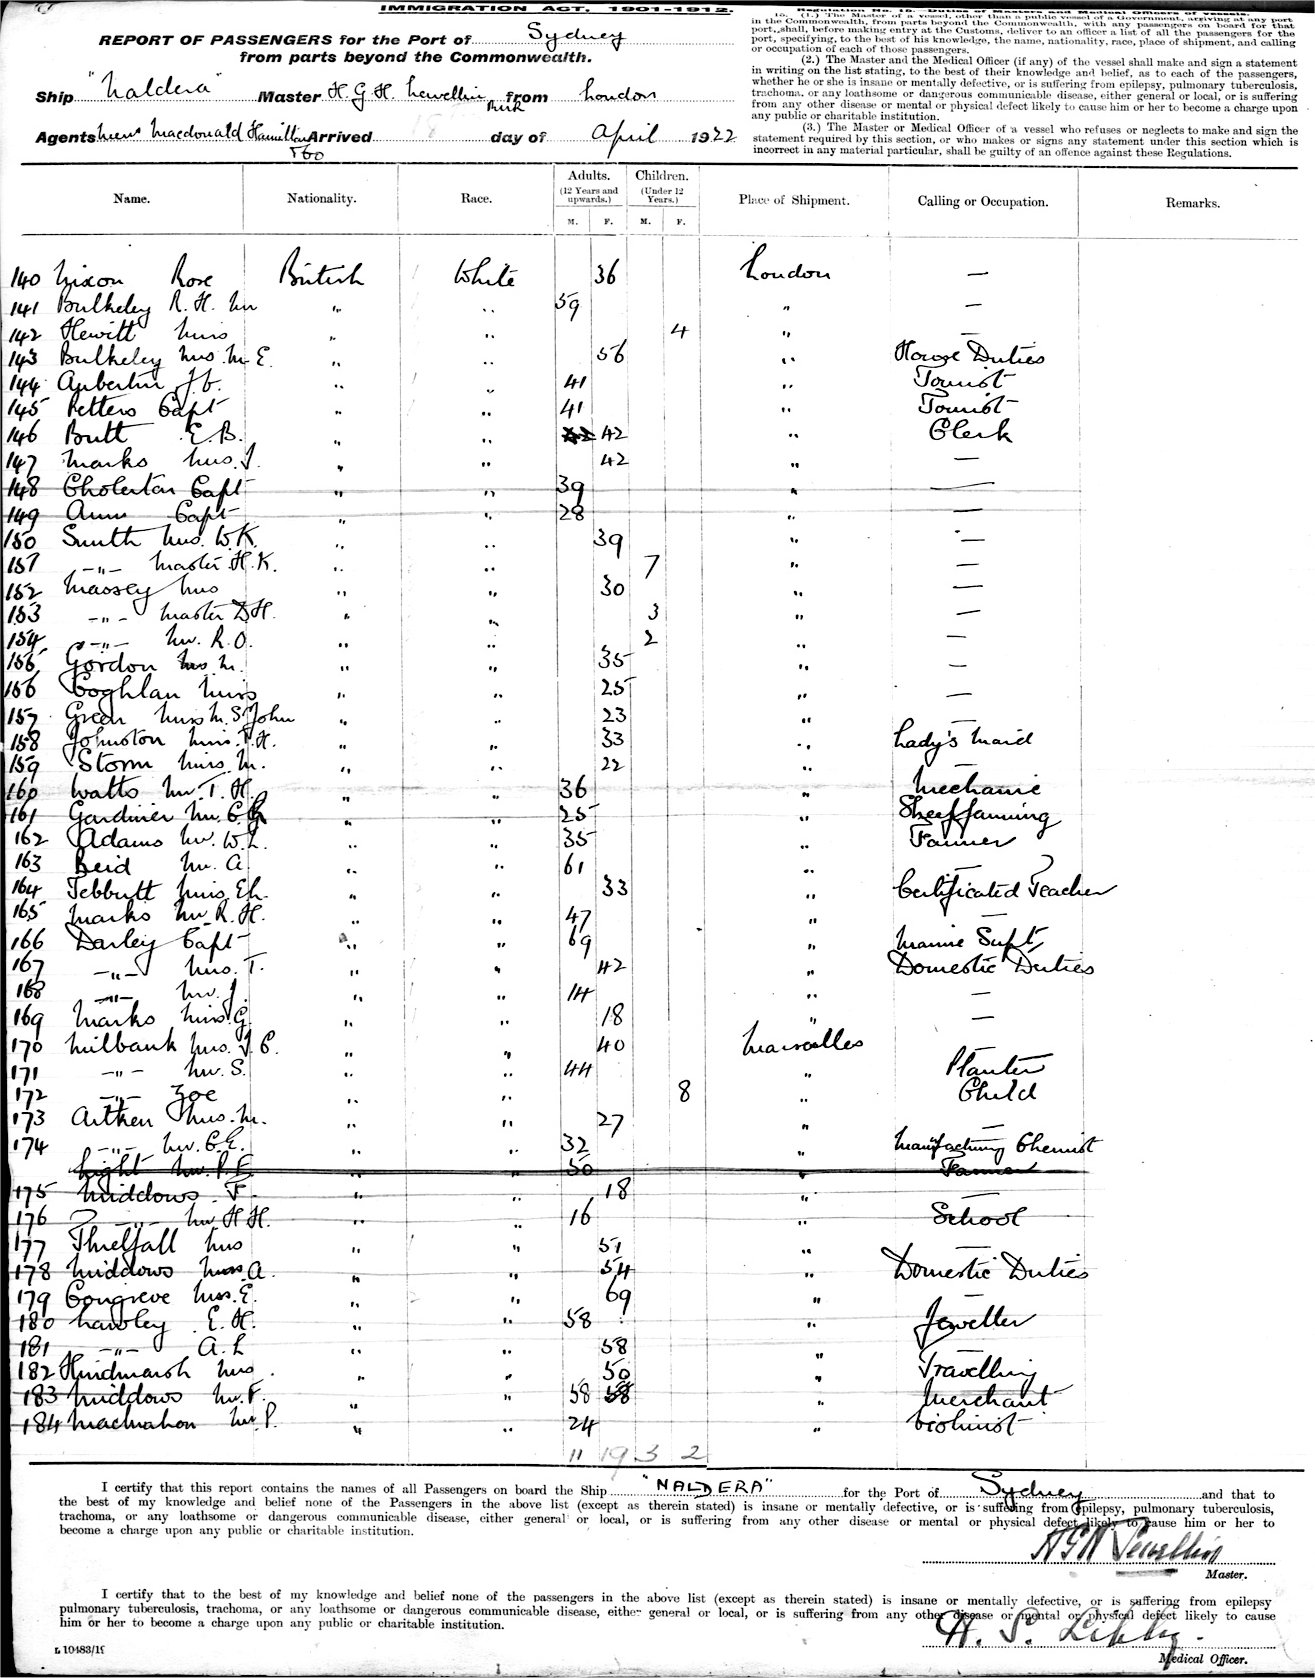 IMMIGRATION ACT, 1901-1912.
REPORT OF PASSENGERS for the Port of Sydney
from parts beyond the Commonwealth.
Ship "Naldera" Master H. G. H. Lewellin from London
Agents Macdonald Hamilton & Co Arrived day of April 1922
Regulation No. 15. Duties of Masters and Medical Officers of Vessels.
15. (1.) The Master of a vessel, other than a public vessel of a Government, arriving at any port
in the Commonwealth, from parts beyond the Commonwealth, with any passengers on board for that
port, shall, before making entry at the Customs, deliver to an officer a list of all the passengers for the
port, specifying, to the best of his knowledge, the name, nationality, race, place of shipment, and calling
or occupation of each of those passengers.
(2.) The Master and the Medical Officer (if any) of the vessel shall make and sign a statement
in writing on the list stating, to the best of their knowledge and belief, as to each of the passengers,
whether he or she is insane or mentally defective, or is suffering from epilepsy, pulmonary tuberculosis,
trachoma, or any loathsome or dangerous communicable disease, either general or local, or is suffering
from any other disease or mental or physical defect likely to cause him or her to become a charge upon
any public or charitable institution.
(3.) The Master or Medical Officer of a vessel who refuses or neglects to make and sign the
statement required by this section, or who makes or signs any statement under this section which is
incorrect in any material particular, shall be guilty of an offence against these Regulations.
Name. Nationality. Race. Adults. (12 Years and upwards.) M. F. Children. (Under 12 Years.) M. F. Place of Shipment. Calling or Occupation. Remarks.
140 Nixon Rose British White 36 London —
141 Bulkeley R. H. Mr " " 59 " —
142 Hewitt Miss " " 4 " —
143 Bulkeley Mrs. M. E. " " 56 " House Duties
144 Aubertin J. " " 41 " Tourist
145 Petters Capt " " 41 " Tourist
146 Butt E. B. " " 42 42 " Clerk
147 Marks Mrs. J. " " 42 " —
148 Cholerton Capt " " 39 " —
149 Capt " " 28 " —
150 Smith Mrs. W. K. " " 39 " —
151 -"- Master H. K. " " 7 " —
152 Massey Mrs " " 30 " —
153 -"- Master D H. " " 3 " —
154 -"- Mr. R. O. " " 2 " —
155 Gordon Mrs M. " " 35 " —
156 Coghlan Miss " " 25 " —
157 Green Miss M. St John " " 23 " —
158 Johnston Miss. H. " " 33 " Lady's Maid
159 Storm Miss. M. " " 22 " —
160 Watts Mr. T. H. " " 36 " Mechanic
161 Gardiner Mr. C. G. " " 25 " Sheepfarming
162 Adams Mr. W. L. " " 35 " Farmer
163 Reid Mr. A " " 61 " —
164 Tebbutt Miss. E. L. " " 33 " Certificated Teacher
165 Marks Mr. R. H. " " 47 " —
166 Darley Capt " " 69 " Marine Supt
167 -"- Mrs. T. " " 42 " Domestic Duties
168 -"- Mr. J. " " 14 " —
169 Marks Miss G " " 18 " —
170 Milbank Mrs. J. C. " " 40 Marseilles —
171 -"- Mr. S. " " 44 " Planter
172 -"- Zoe " " 8 " Child
173 Aitken Mrs. M. " " 27 " —
174 -"- Mr. C. E. " " 32 " Manufacturing Chemist
Light Mr. P. E " " 50 " Farmer
175 Middows F. " " 18 " —
176 -"- Mr H H. " " 16 " School
177 Thielfall Mrs " " 51 " —
178 Middows Mrs A. " " 54 " Domestic Duties
179 Congreve Mrs. E. " " 69 " —
180 Lawley E. H. " " 58 " Jeweller
181 -"- A. L " " 58 " —
182 Hindmarsh Mrs. " " 50 " Travelling
183 Middows Mr. F. " " 58 58 " Merchant
184 Macmahon Mr. P. " " 24 " Violinist
11 19 3 2
I certify that this report contains the names of all Passengers on board the Ship "NALDERA" for the Port of Sydney and that to
the best of my knowledge and belief none of the Passengers in the above list (except as therein stated) is insane or mentally defective, or is suffering from epilepsy, pulmonary tuberculosis,
trachoma, or any loathsome or dangerous communicable disease, either general or local, or is suffering from any other disease or mental or physical defect likely to cause him or her to
become a charge upon any public or charitable institution.
H G H Lewellin
Master.
I certify that to the best of my knowledge and belief none of the passengers in the above list (except as therein stated) is insane or mentally defective, or is suffering from epilepsy
pulmonary tuberculosis, trachoma, or any loathsome or dangerous communicable disease, either general or local, or is suffering from any other disease or mental or physical defect likely to cause
him or her to become a charge upon any public or charitable institution.
H. S. Libby.
Medical Officer.
L 10483/19